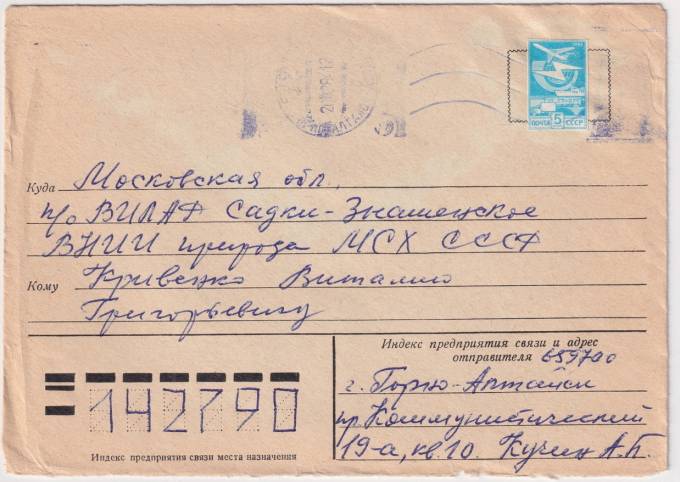 ПОЧТА 5 СССР
Куда Московская обл.,
п/о ВИЛАР Садки-Знаменское
ВНИИ природа МСХ СССР
Кому Кривенко Виталию
Григорьевичу
Индекс предприятия связи и адрес
отправителя 659700
г. Горно-Алтайск
пр. Коммунистический
19-а, кв. 10. Кучин А.П.
142790
Индекс предприятия связи места назначения